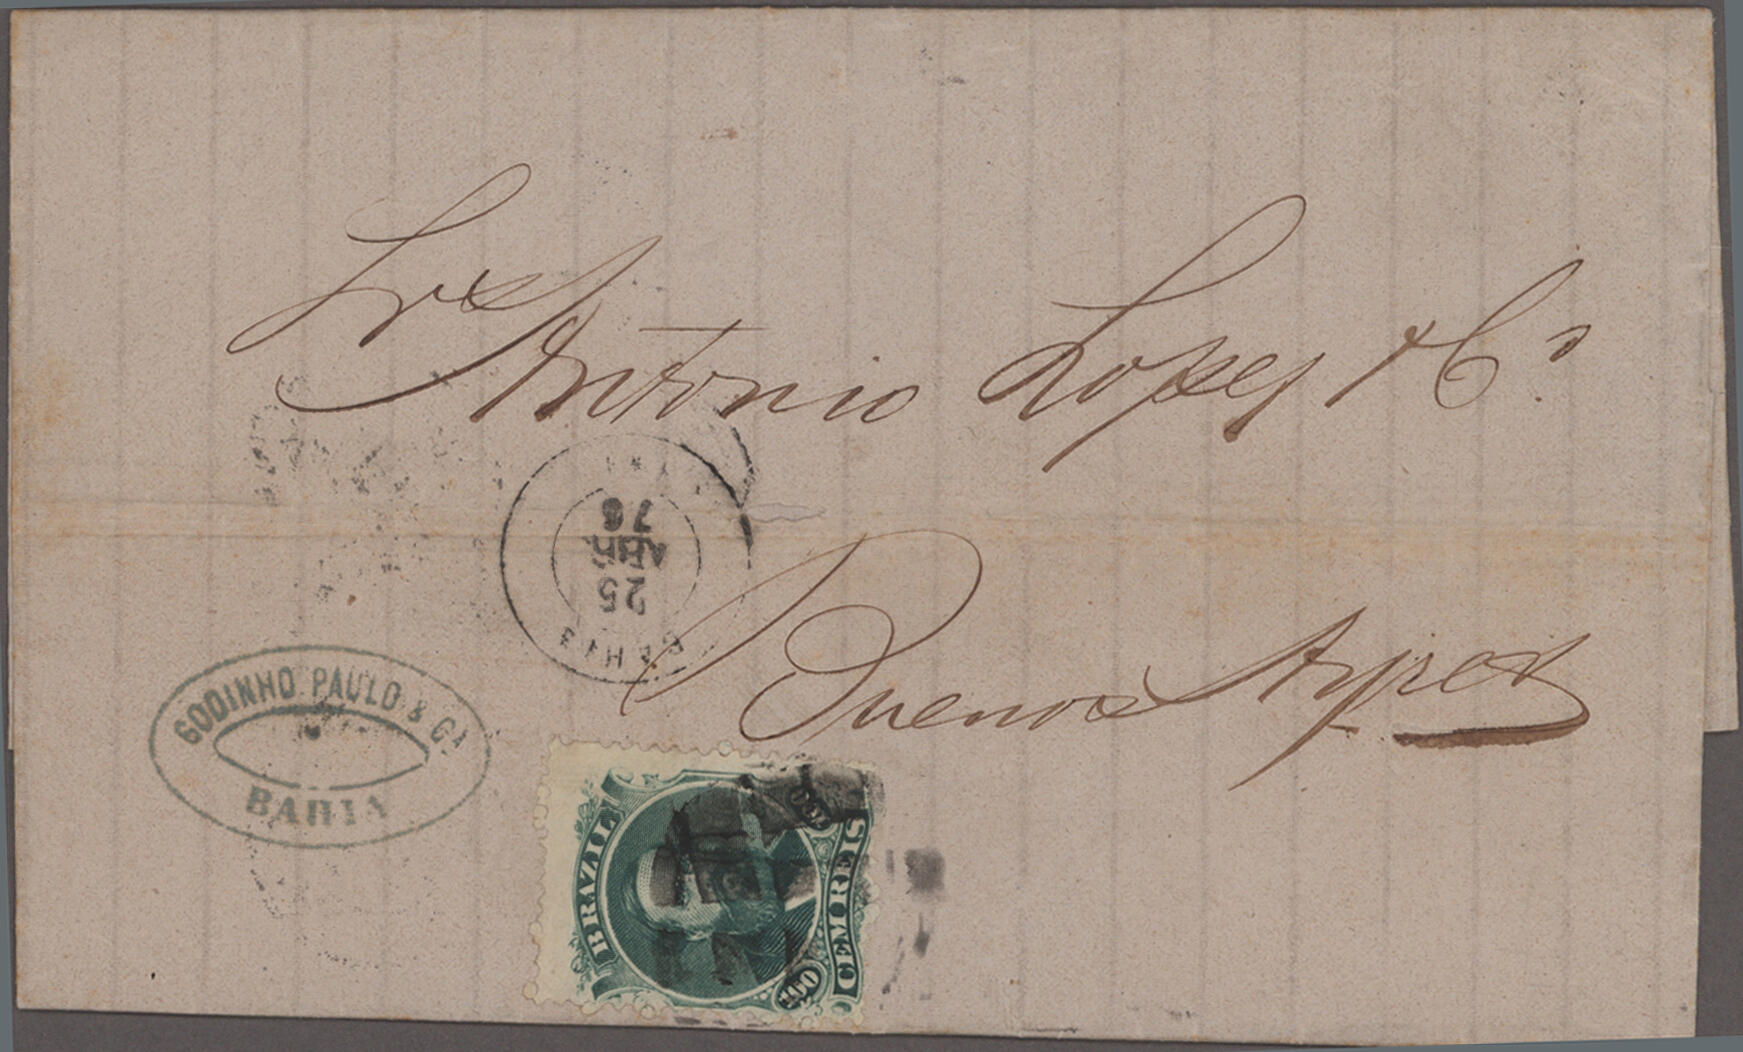 Srs Antonio Lopes & Ca.
Buenos Ayres
BAHIA
25
ABR.
76
GODINHO PAULO & CA.
BAHIA
BRAZIL
100
100
CEM REIS